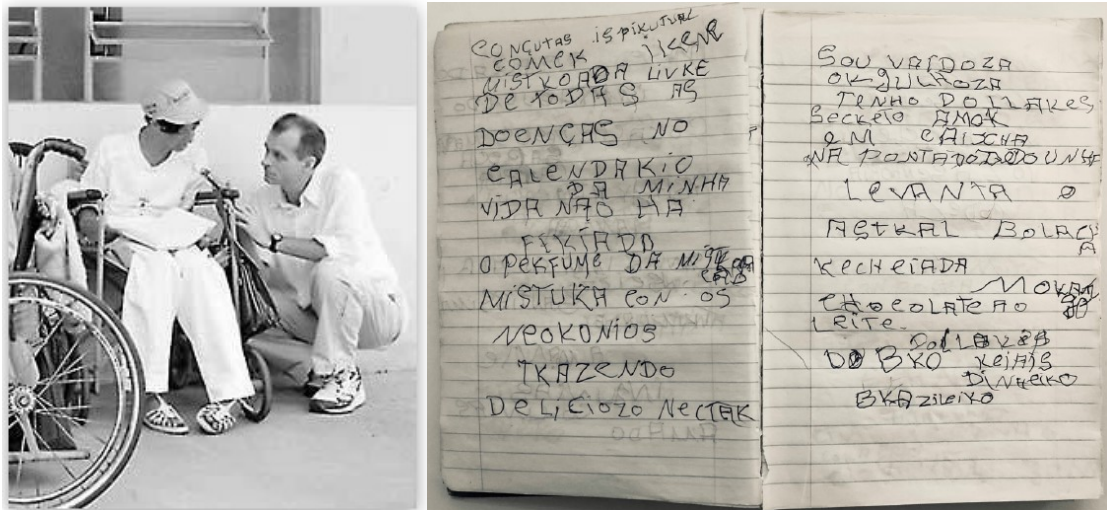 CONCUTAS ISPIKUTUAL
COMEK
MISTKOADA LIVKE
DE TODAS AS
DOENÇAS NO
CALENDAKIO
DA MINHA
VIDA NÃO HA
O PEKFUME DA
MISTUKA CON OS
NEOKONIOS
TKAZENDO
DELICIOZO NECTAK
SOU VAIDOZA
OKGULHOZA
TENHO DOLLAKES
AMOK
EM CAIXHA
NA PONTA
LEVANTA O
ASTKAL BOLACH
A
KECHEIADA
CHOCOLATE AO
LEITE.
DO BKO KEIAIS
DINHEIKO
BKAZILEIKO